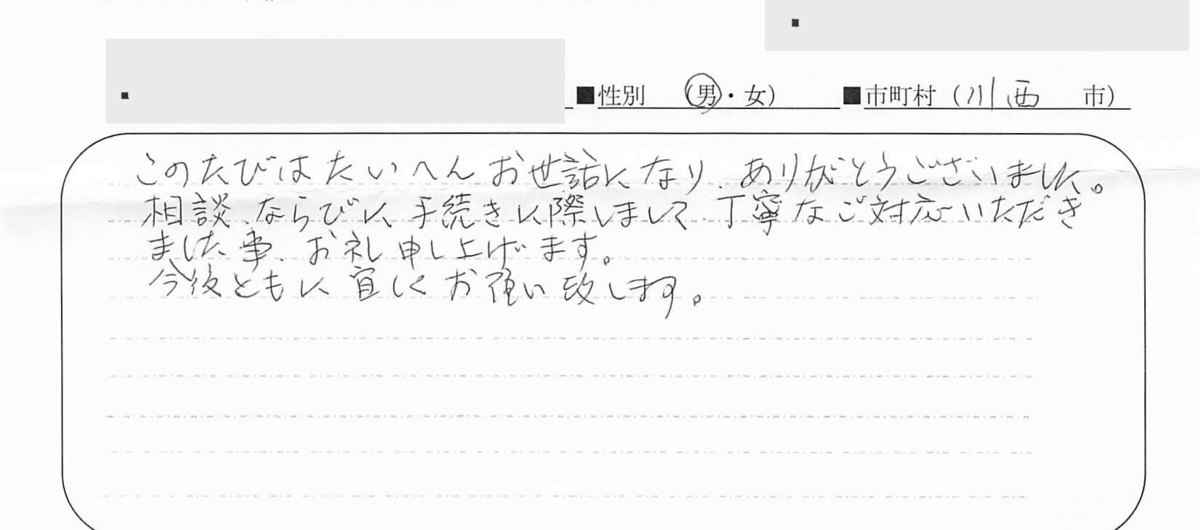 ■性別 (男・女) ■市町村(川西 市)
このたびはたいへんお世話になり、ありがとうございました。
相談、ならびに、手続きに際しまして、丁寧なご対応いただき
ました事、お礼申し上げます。
今後ともに宜しくお願い致します。